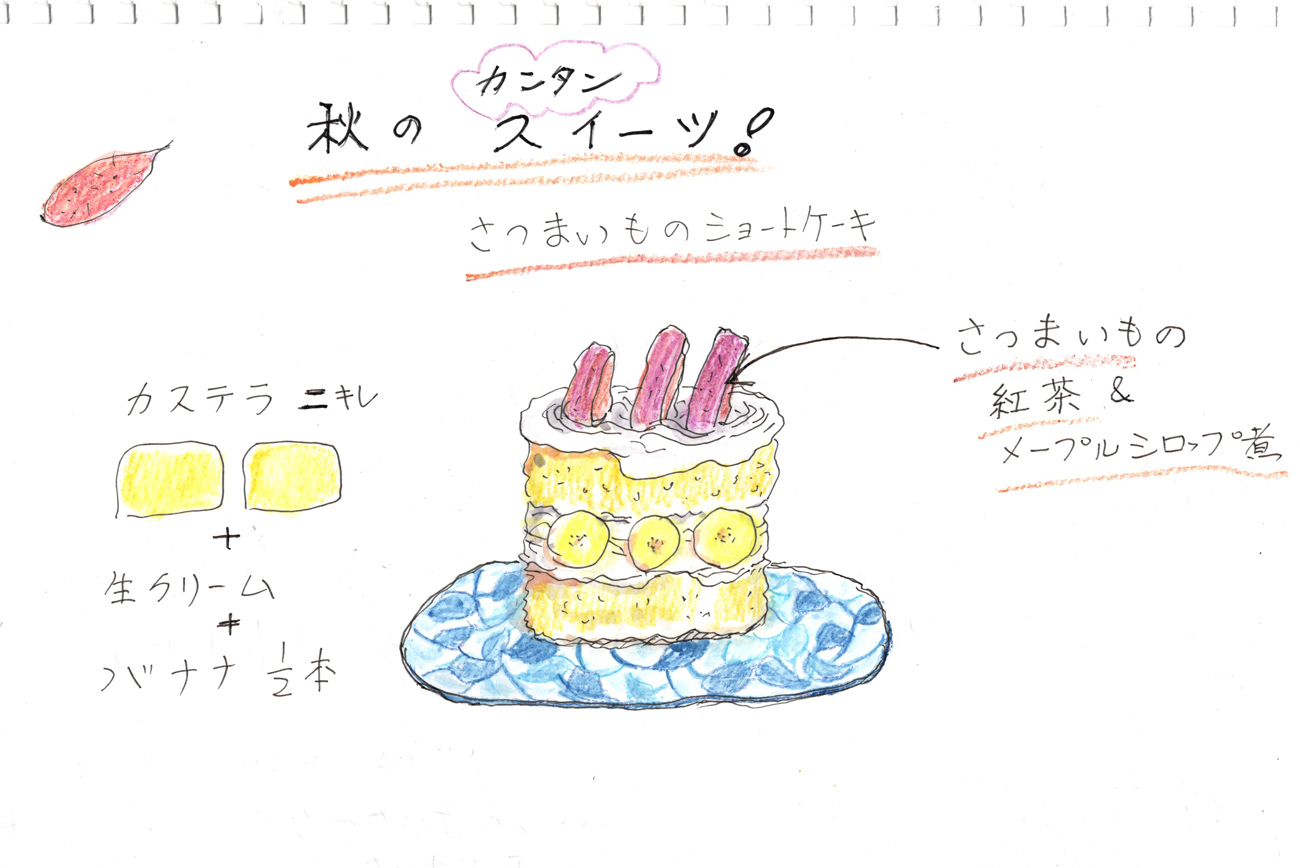 カンタン
秋の スイーツ!
さつまいものショートケーキ
さつまいもの
紅茶 &
メープルシロップ煮
カステラ ニキレ
+
生クリーム
+
バナナ 1/2本